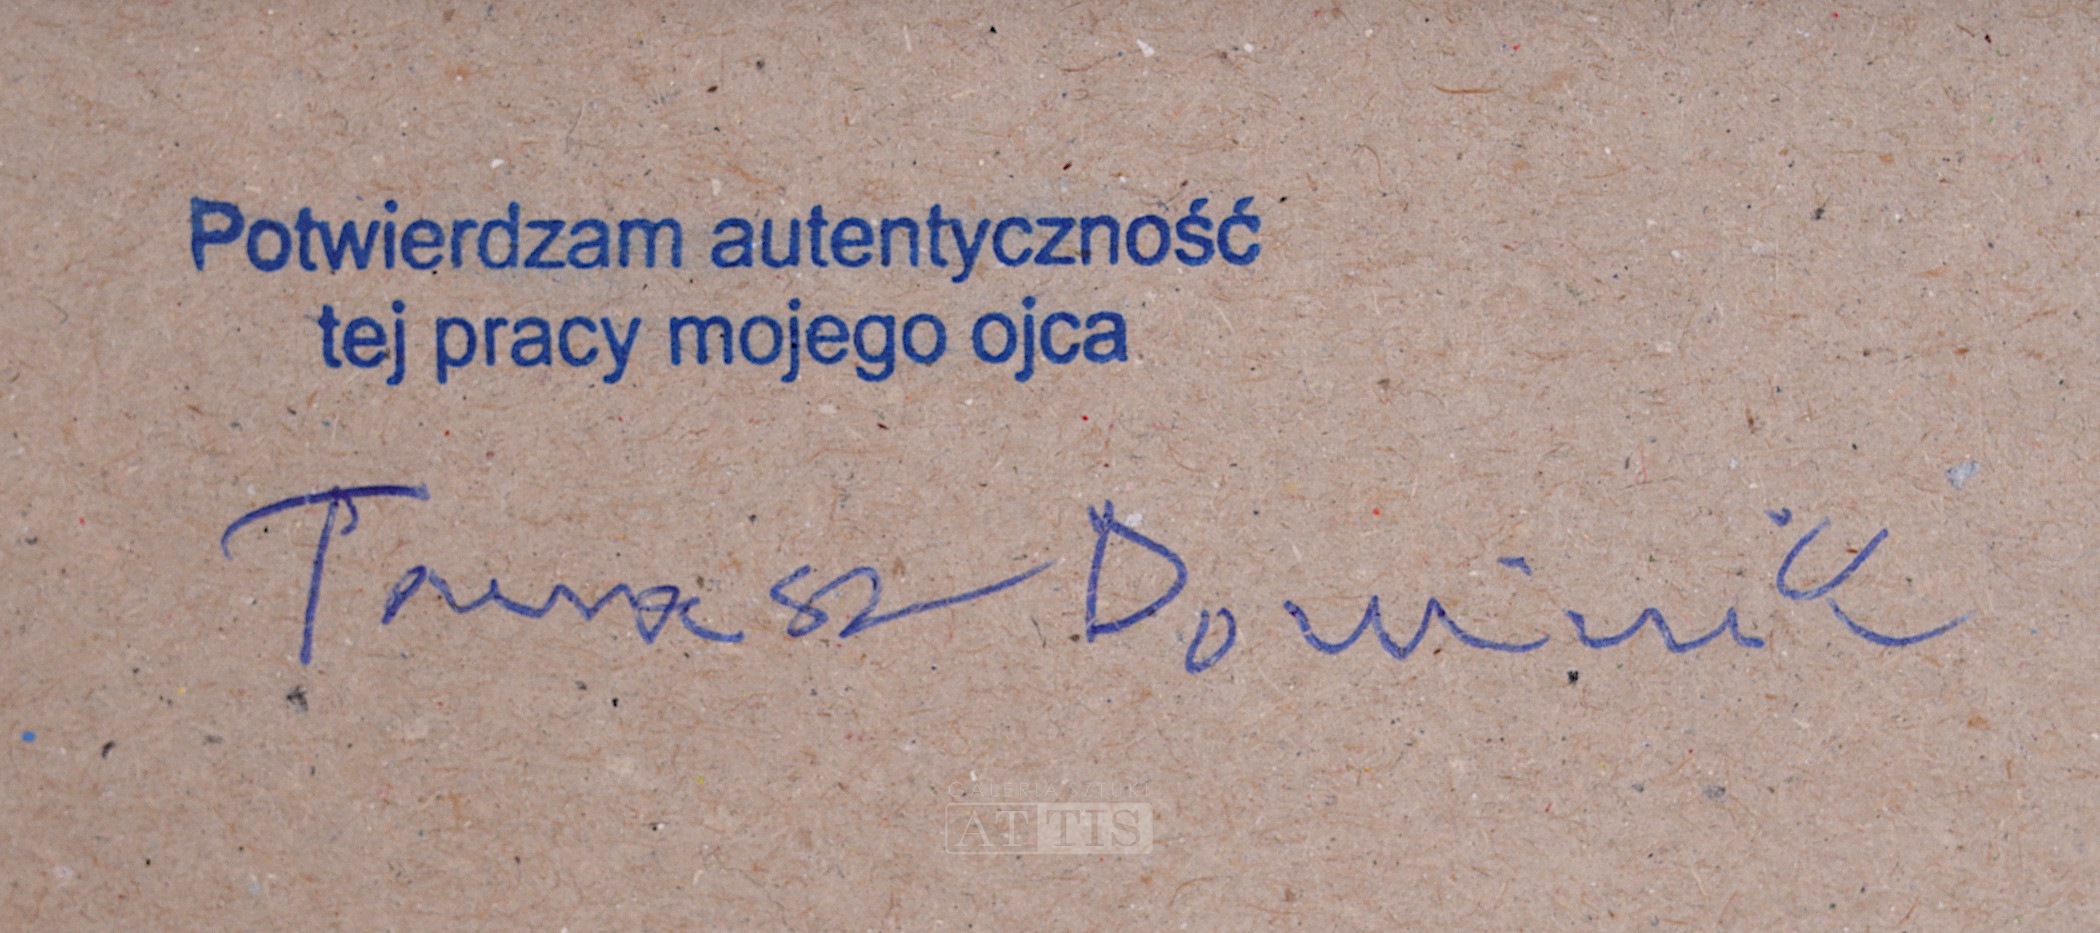 Potwierdzam autentyczność
tej pracy mojego ojca
Tomasz Dominik
GALERIA SZTUKI
ATTIS